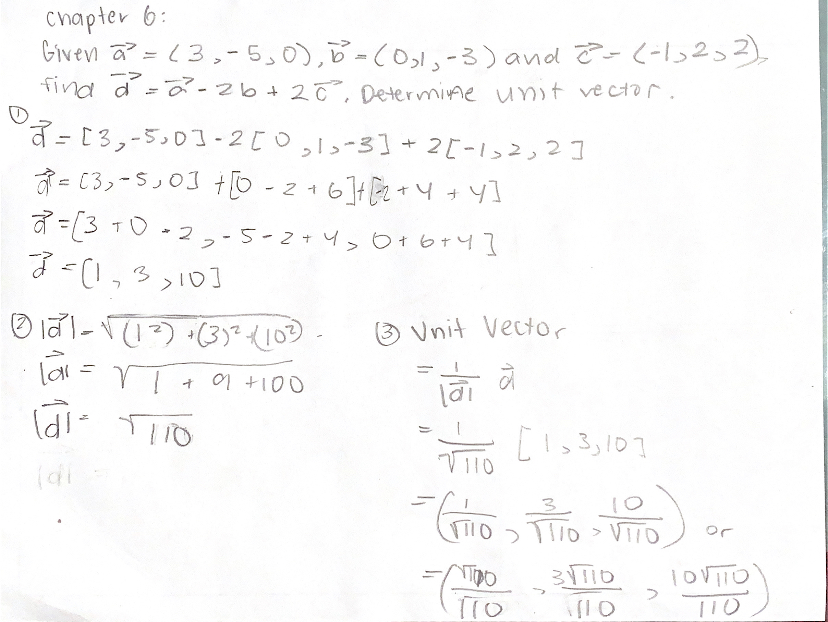 chapter 6:
Given a⃗ = (3,-5,0), b⃗ = (0,1,-3) and c⃗ = (-1,2,2),
find d⃗ = a⃗ - 2b + 2c⃗. Determine unit vector.
① d⃗ = [3,-5,0] - 2[0,1,-3] + 2[-1,2,2]
d⃗ = [3,-5,0] + [0 - 2 + 6] + [-2 + 4 + 4]
d⃗ = [3 + 0 - 2, -5 - 2 + 4, 0 + 6 + 4]
d⃗ = [1, 3, 10]
② |d⃗| = √(1²) + (3)² + (10²)
|d⃗| = √1 + 9 + 100
|d⃗| = √110
|d|
③ Unit Vector
= 1/|d⃗| d⃗
= 1/√110 [1,3,10]
= (1/√110, 3/√110, 10/√110) or
= (√110/110, 3√110/110, 10√110/110)